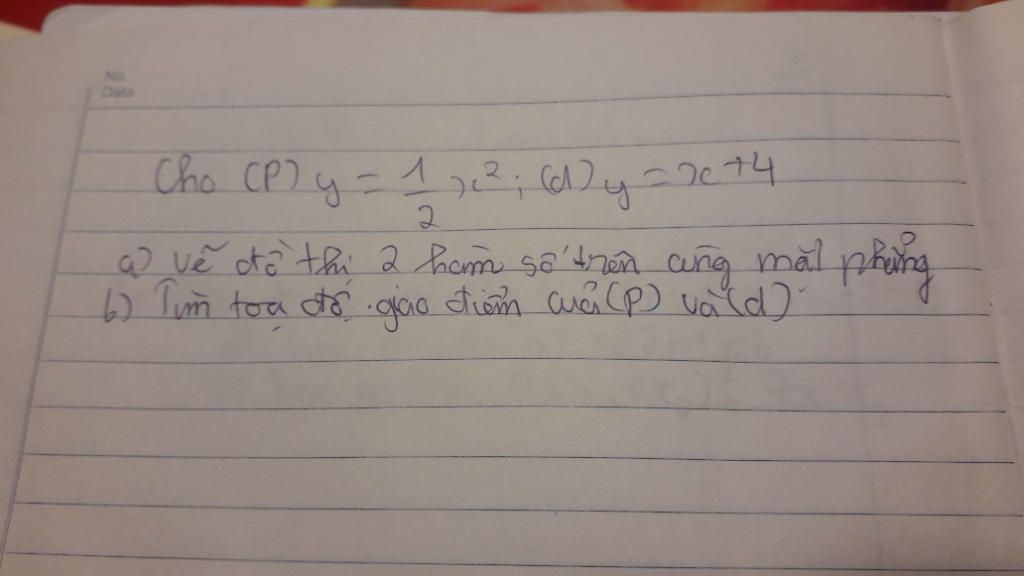 No.
Date
Cho (P) y = 1/2 x²; (d) y = x + 4
a) vẽ đồ thị 2 hàm số trên cùng mặt phẳng
b) Tìm toạ độ giao điểm của (P) và (d)